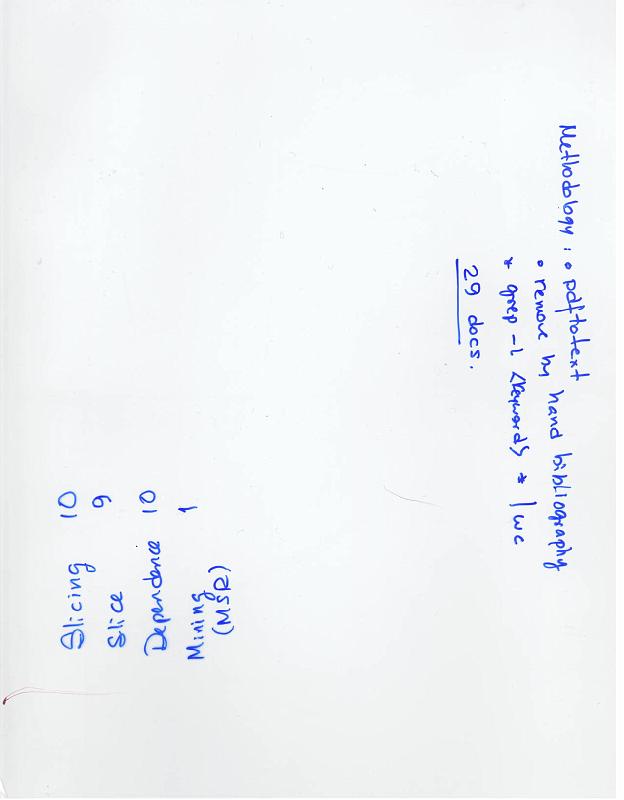 Methodology : • pdftotext
• remove by hand bibliography
* grep -l <keyword> * | wc
29 docs.
Slicing 10
Slice 9
Dependence 10
Mining 1
(MSR)